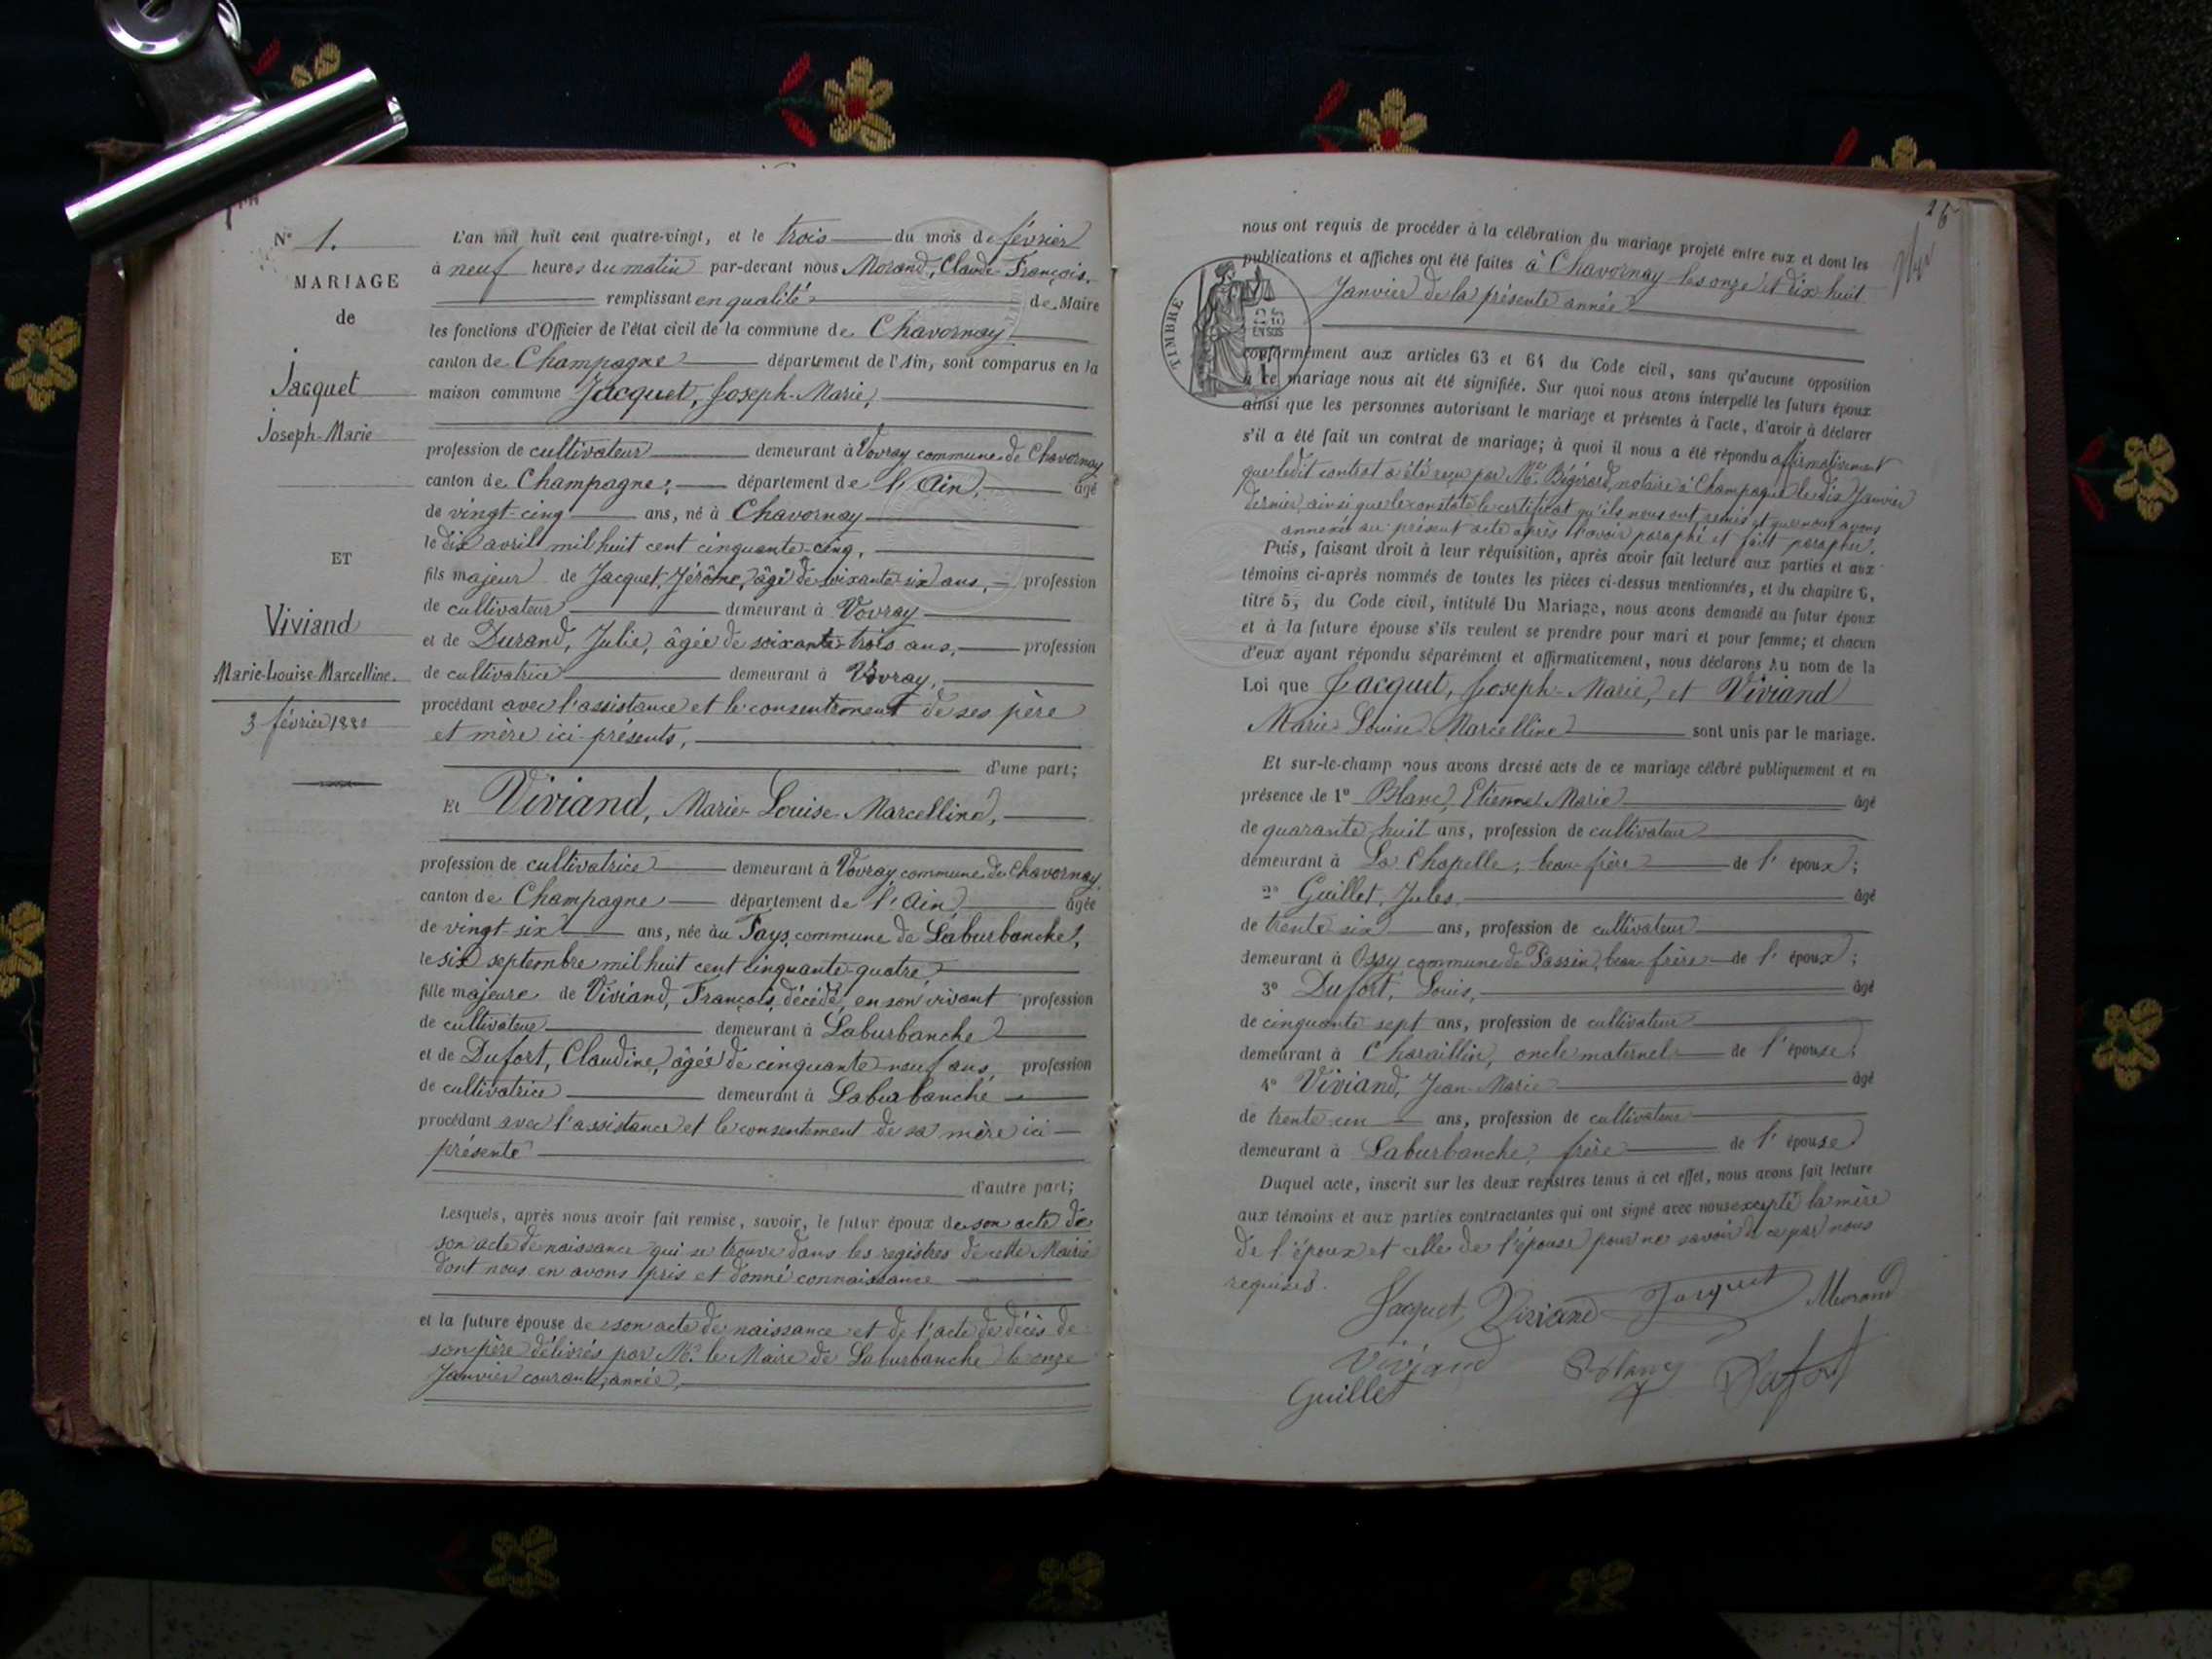 N° 1.
MARIAGE
de
Jacquet
Joseph-Marie
ET
Viviand
Marie-Louise-Marcelline.
3 février 1880
L'an mil huit cent quatre-vingt, et le trois du mois de février
à neuf heures du matin par-devant nous Morand, Claude François,
remplissant en qualité de Maire
les fonctions d'Officier de l'état civil de la commune de Chavornay
canton de Champagne département de l'Ain, sont comparus en la
maison commune Jacquet, Joseph-Marie,
profession de cultivateur demeurant à Vovray commune de Chavornay
canton de Champagne, département de l'Ain, âgé
de vingt-cinq ans, né à Chavornay
le dix avril mil huit cent cinquante-cinq,
fils majeur de Jacquet, Jérôme, âgé de soixante-six ans, profession
de cultivateur demeurant à Vovray
et de Durand, Julie, âgée de soixante-trois ans, profession
de cultivatrice demeurant à Vovray,
procédant avec l'assistance et le consentement de ses père
et mère ici présents,
d'une part;
Et Viviand, Marie-Louise-Marcelline,
profession de cultivatrice demeurant à Vovray commune de Chavornay
canton de Champagne département de l'Ain âgée
de vingt-six ans, née au Fays, commune de Laburbanche,
le six septembre mil huit cent cinquante-quatre,
fille majeure de Viviand, François, décédé, en son vivant profession
de cultivateur demeurant à Laburbanche
et de Dufort, Claudine, âgée de cinquante-neuf ans, profession
de cultivatrice demeurant à Laburbanche
procédant avec l'assistance et le consentement de sa mère ici
présente
d'autre part;
Lesquels, après nous avoir fait remise, savoir, le futur époux de son acte de
son acte de naissance qui se trouve dans les registres de cette Mairie
dont nous en avons pris et donné connaissance
et la future épouse de son acte de naissance et de l'acte de décès de
son père délivrés par Mr le Maire de Laburbanche le onze
Janvier courante année,
26
nous ont requis de procéder à la célébration du mariage projeté entre eux et dont les
publications et affiches ont été faites à Chavornay les onze et dix huit
Janvier de la présente année
TIMBRE
25
EN SUS
conformément aux articles 63 et 64 du Code civil, sans qu'aucune opposition
à ce mariage nous ait été signifiée. Sur quoi nous avons interpellé les futurs époux
ainsi que les personnes autorisant le mariage et présentes à l'acte, d'avoir à déclarer
s'il a été fait un contrat de mariage; à quoi il nous a été répondu affirmativement
que ledit contrat a été reçu par Me Bégérard, notaire à Champagne le dix Janvier
dernier, ainsi que le constate le certificat qu'ils nous ont remis et que nous avons
annexé au présent acte après l'avoir paraphé et fait parapher.
Puis, faisant droit à leur réquisition, après avoir fait lecture aux parties et aux
témoins ci-après nommés de toutes les pièces ci-dessus mentionnées, et du chapitre 6,
titre 5, du Code civil, intitulé Du Mariage, nous avons demandé au futur époux
et à la future épouse s'ils veulent se prendre pour mari et pour femme; et chacun
d'eux ayant répondu séparément et affirmativement, nous déclarons Au nom de la
Loi que Jacquet, Joseph-Marie, et Viviand
Marie Louise Marcelline sont unis par le mariage.
Et sur-le-champ nous avons dressé acte de ce mariage célébré publiquement et en
présence de 1° Blanc, Etienne Marie âgé
de quarante huit ans, profession de cultivateur
demeurant à La Chapelle, beau-frère de l'époux;
2° Guillet, Jules, âgé
de trente six ans, profession de cultivateur
demeurant à Ossy commune de Passin, beau frère de l'époux;
3° Dufort, Louis, âgé
de cinquante sept ans, profession de cultivateur
demeurant à Charaillin, oncle maternel de l'épouse;
4° Viviand, Jean-Marie âgé
de trente-un ans, profession de cultivateur
demeurant à Laburbanche, frère de l'épouse
Duquel acte, inscrit sur les deux registres tenus à cet effet, nous avons fait lecture
aux témoins et aux parties contractantes qui ont signé avec nous excepté la mère
de l'époux et celle de l'épouse pour ne savoir à ce par nous
requises.
Jacquet Viviand Jacquet Morand
Viviand Blanc Dufort
Guillet